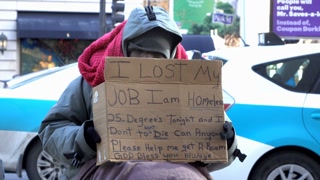 People will call you
Mr. Saves-a-
Instead of
Coupon Dork
I LOST My
JOB I am Homeless
25. Degrees Tonight and I
Don't Just Die Can Anyone
Please Help me get A Room
GOD Bless you Always